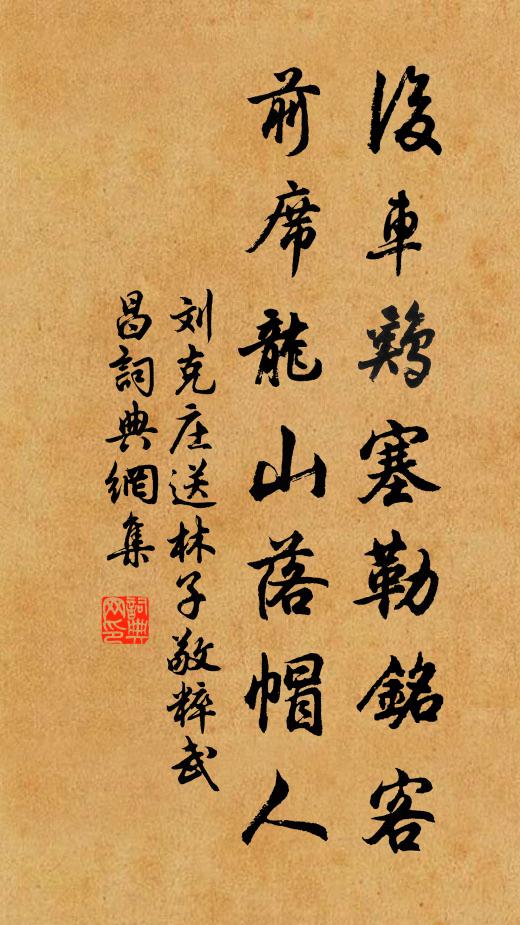 後車鷄塞勒銘客
前席龍山落帽人
刘克庄送林子敬粹武
昌詞典網集
詞典网印